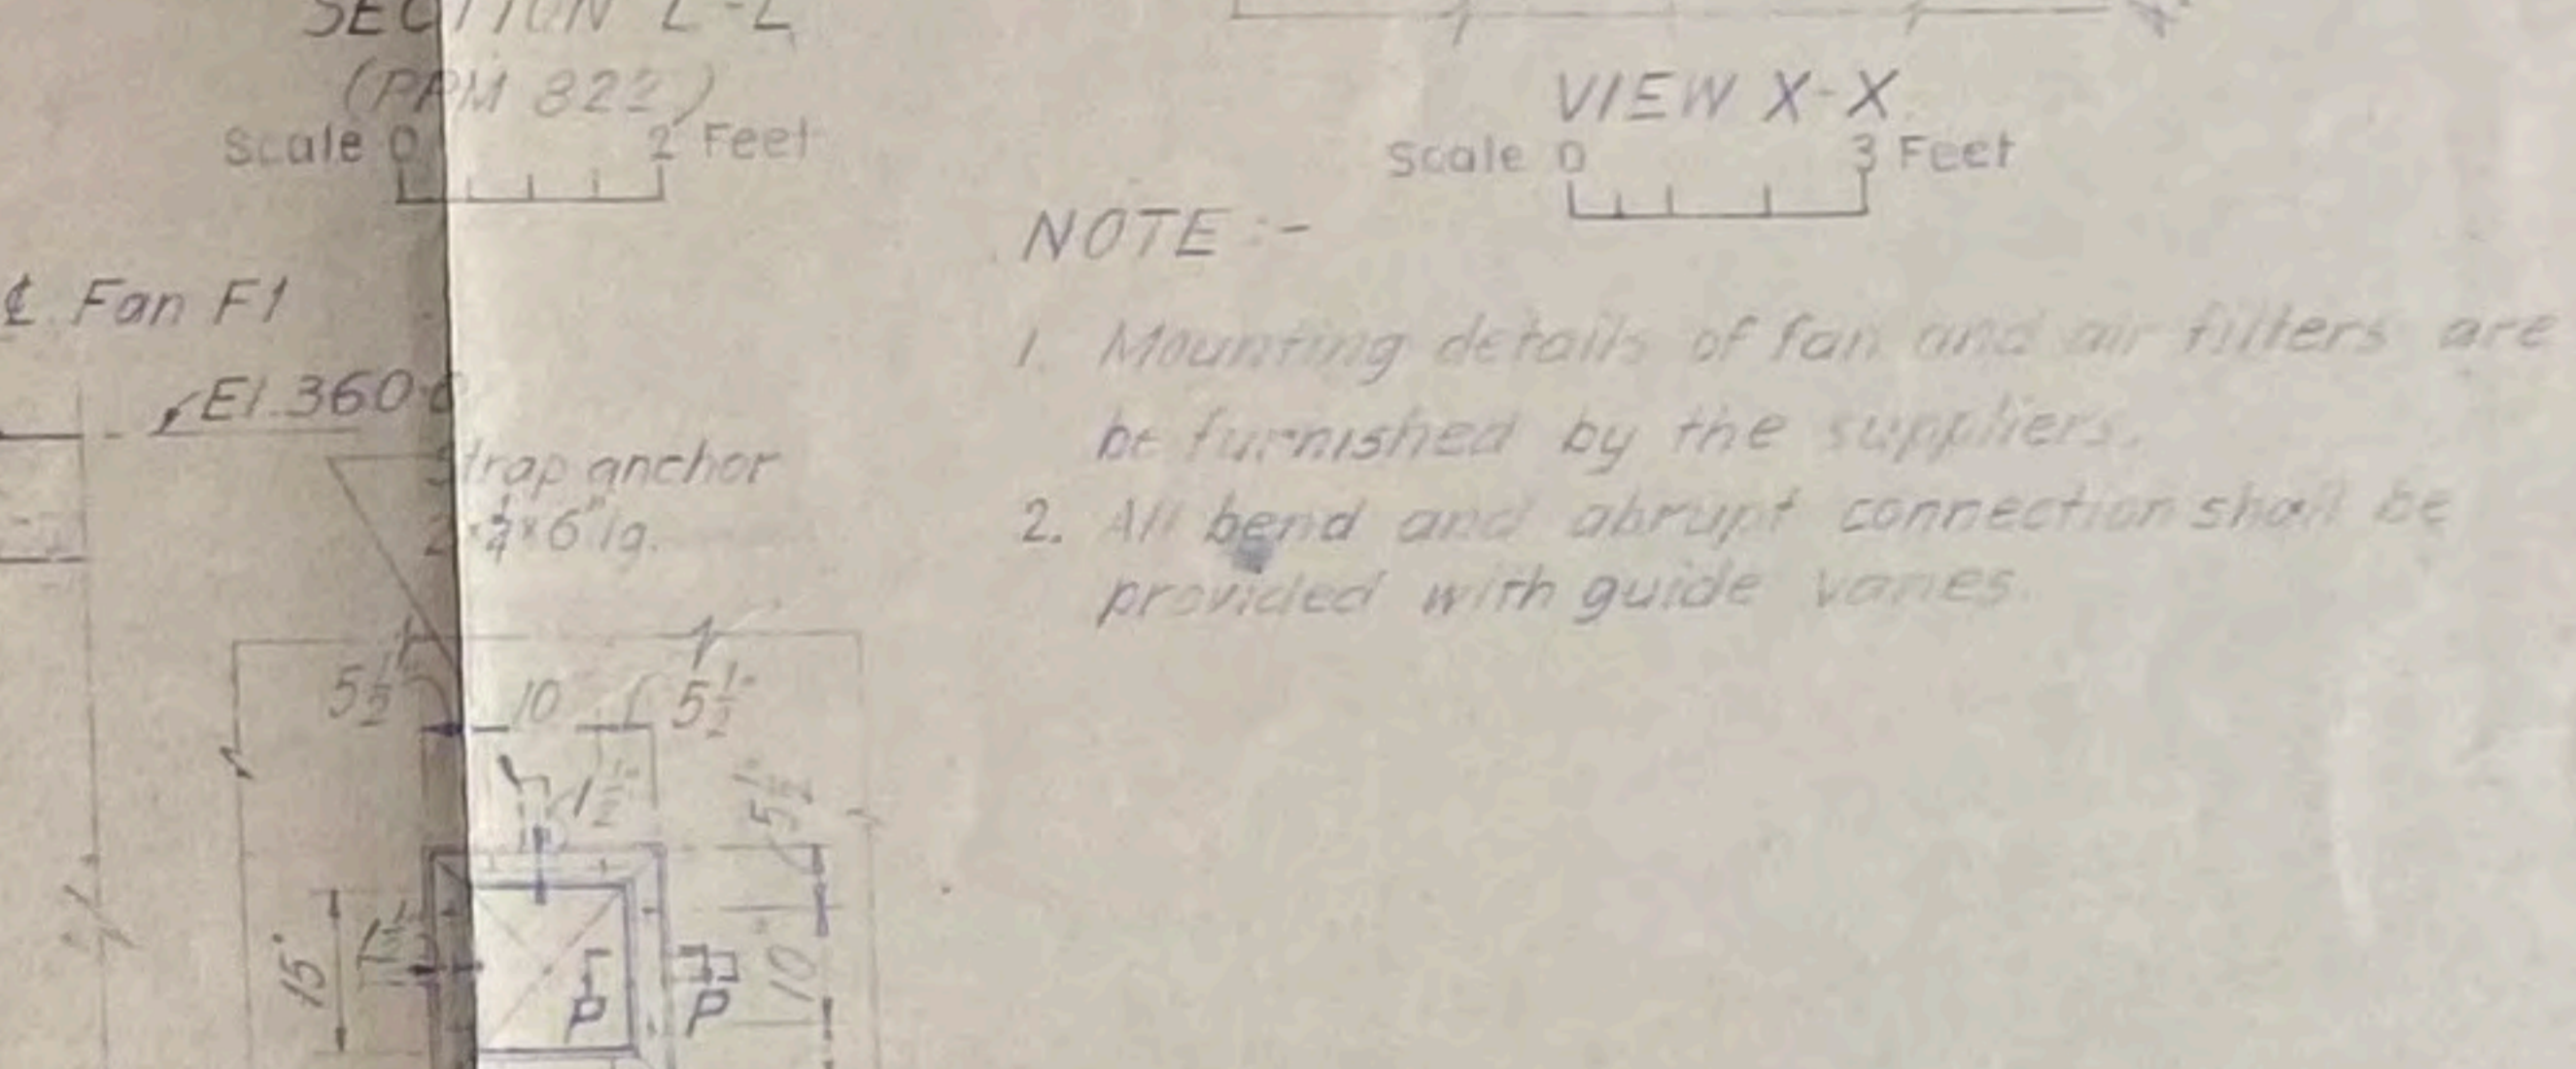 SECTION L-L
(PPM 822)
Scale 0 2 Feet
VIEW X-X
Scale 0 3 Feet
NOTE :-
1. Mounting details of fan and air filters are
be furnished by the suppliers.
2. All bend and abrupt connection shall be
provided with guide vanes
℄ Fan F1
El. 360·0
Strap anchor
2×¼×6" lg.
5½" 10 5½"
1½"
5½"
15"
1½"
10"
P P